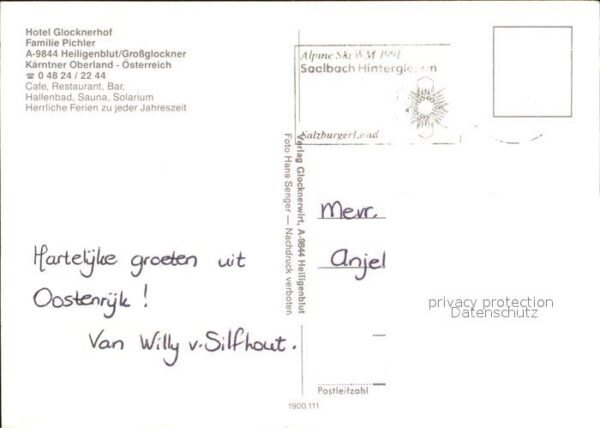 Hotel Glocknerhof
Familie Pichler
A-9844 Heiligenblut/Großglockner
Kärntner Oberland - Österreich
☎ 0 48 24 / 22 44
Cafe, Restaurant, Bar,
Hallenbad, Sauna, Solarium
Herrliche Ferien zu jeder Jahreszeit
Alpine Ski WM 1991
Saalbach Hinterglemm
SalzburgerLand
Verlag Glocknerwirt, A-9844 Heiligenblut
Foto Hans Senger — Nachdruck verboten
Hartelijke groeten uit
Oostenrijk!
Van Willy v. Silfhout.
Mevr.
Anjel
privacy protection
Datenschutz
Postleitzahl
1900 111